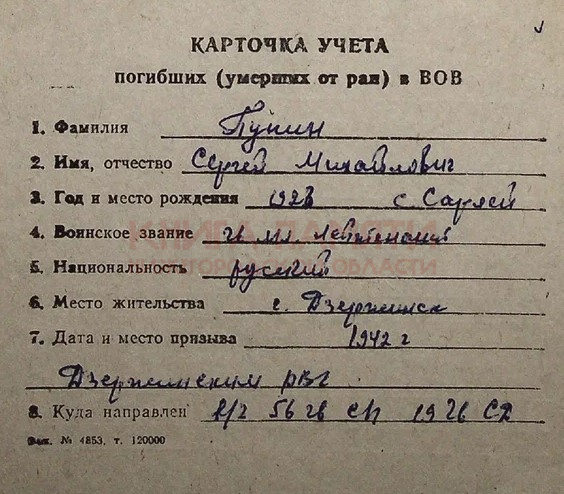 КАРТОЧКА УЧЕТА
погибших (умерших от ран) в ВОВ
1. Фамилия Пунин
2. Имя, отчество Сергей Михайлович
3. Год и место рождения 1923 с. Сарлей
4. Воинское звание гв мл. лейтенант
КНИГА ПАМЯТИ
НИЖЕГОРОДСКОЙ ОБЛАСТИ
5. Национальность русский
6. Место жительства г. Дзержинск
7. Дата и место призыва 1942 г
Дзержинским РВК
8. Куда направлен 56 гв СП 19 гв СД
Зак. № 4853, т. 120000